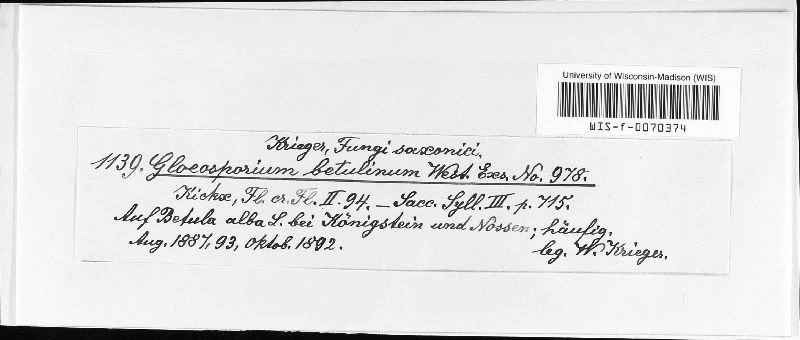 University of Wisconsin-Madison (WIS)
WIS-f-0070374
Krieger, Fungi saxonici.
1139. Gloeosporium betulinum West. Exs. No. 978.
Kickx, Fl. cr. Fl. II. 94. — Sacc. Syll. III. p. 715.
Auf Betula alba L. bei Königstein und Nossen; häufig.
Aug. 1887, 93, Oktob. 1892.
leg. W. Krieger.